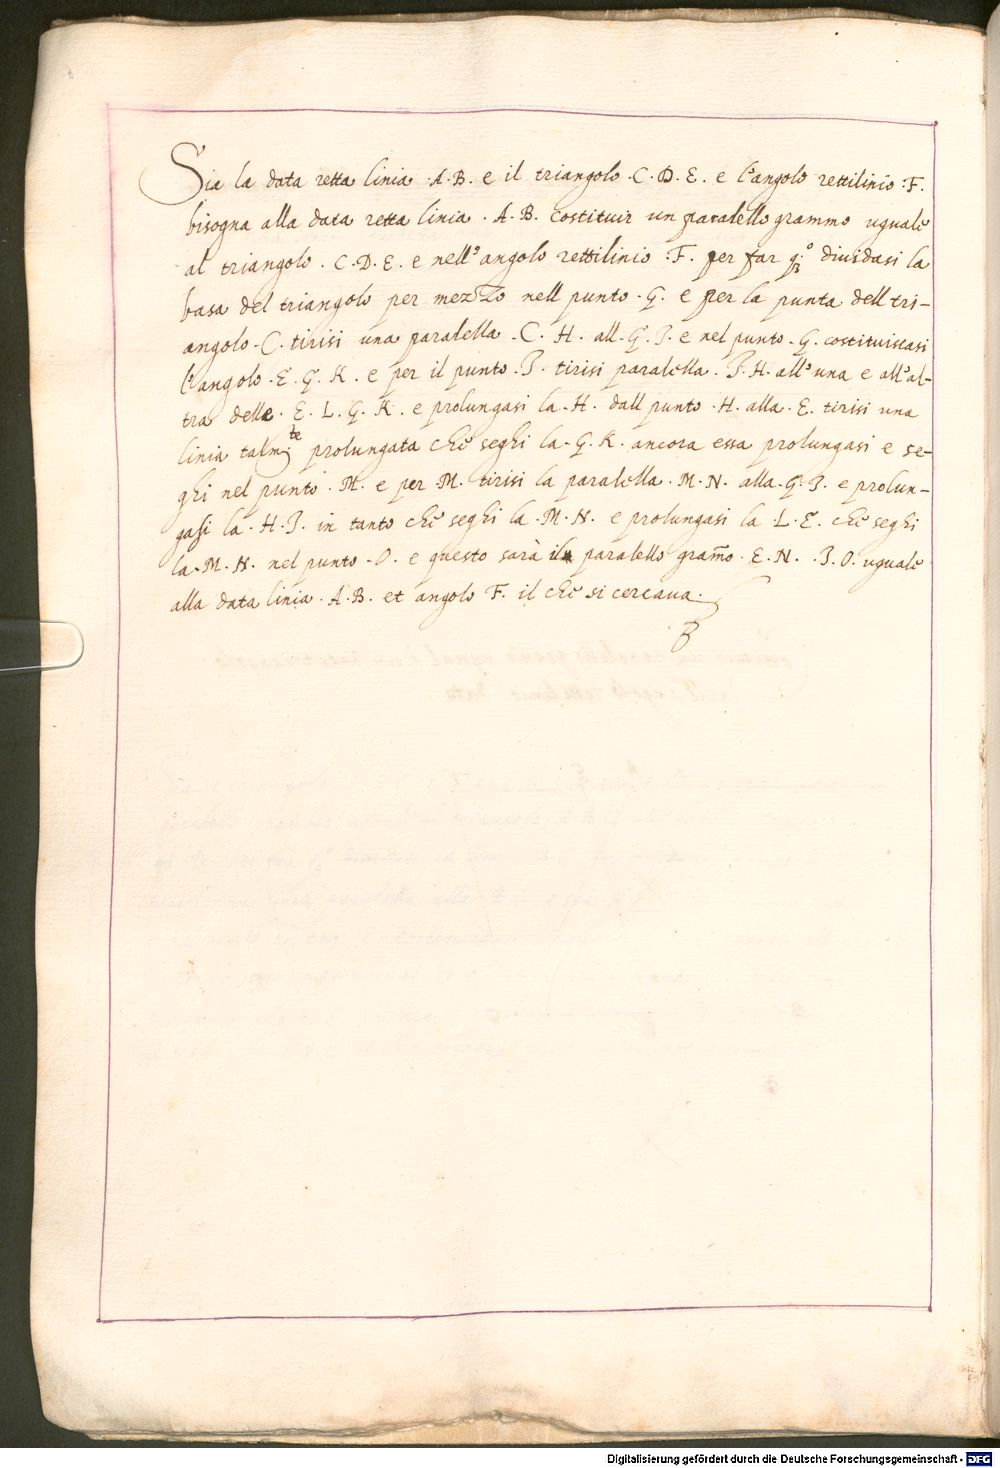 Sia la data retta linia .A.B. e il triangolo .C.D.E. e l'angolo rettilinio .F.
bisogna alla data retta linia .A.B. costituir un paralello grammo uguale
al triangolo .C.D.E. e nell'angolo rettilinio .F. per far q.º diuidasi la
basa del triangolo per mezzo nell punto .G. e per la punta dell tri-
angolo .C. tirisi una paralella .C.H. all .G.I. e nel punto .G. costituiscasi
l'angolo .E.G.K. e per il punto .I. tirisi paralella .I.H. all'una e all'al-
tra delle .E.L.G.K. e prolungasi la .H. dall punto .H. alla .E. tirisi una
linia talm.te prolungata che seghi la .G.K. ancora essa prolungasi e se-
ghi nel punto .M. e per M. tirisi la paralella .M.N. alla .G.I. e prolun-
gasi la .H.I. in tanto che seghi la .M.N. e prolungasi la .L.E. che seghi
la .M.N. nel punto .O. e questo sarà il paralello gram̃o .E.N. .I.O. uguale
alla data linia .A.B. et angolo F. il che si cercaua.
Digitalisierung gefördert durch die Deutsche Forschungsgemeinschaft - DFG